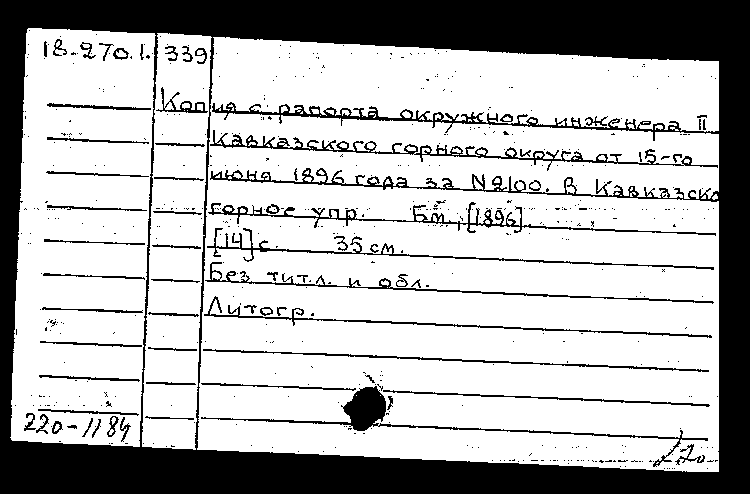 18-270.1. 339
Копия с рапорта окружного инженера II
Кавказского горного округа от 15-го
июня 1896 года за №2100. В Кавказско
горное упр. Бм., [1896].
[14] с. 35 см.
Без тит.л. и обл.
Литогр.
220-1184